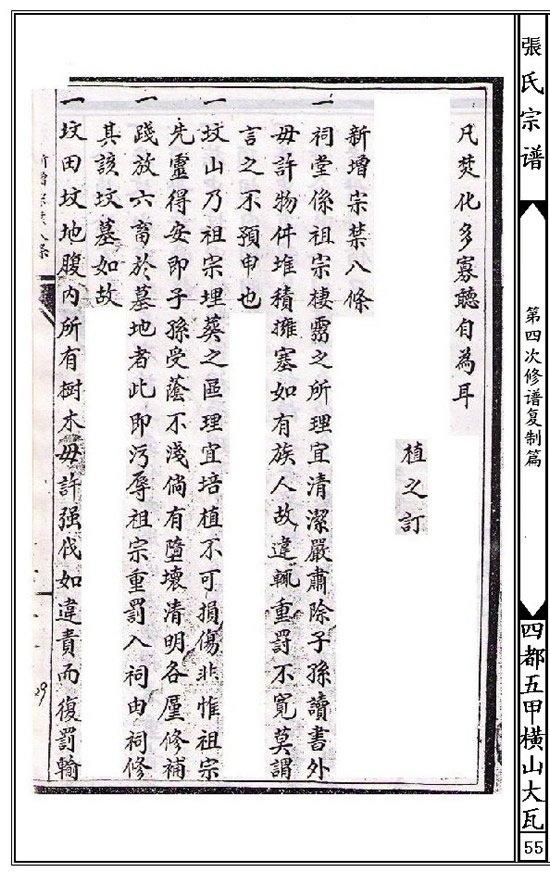 張氏宗谱
第四次修谱复制篇
四都五甲橫山大瓦
55
凡焚化多寡聽自為耳
植之訂
新增宗禁八條
一祠堂係祖宗棲霛之所理宜清潔嚴肅除子孫讀書外
毋許物件堆積擁塞如有族人故違輒重罰不寬莫謂
言之不預申也
一坟山乃祖宗埋葬之區理宜培植不可損傷非惟祖宗
先靈得安即子孫受蔭不淺倘有墮壞清明各屋修補
一踐放六畜於墓地者此即污辱祖宗重罰入祠由祠修
其該坟墓如故
一坟田坟地腹內所有树木毋許强伐如違責而復罰輸
新增宗禁八条